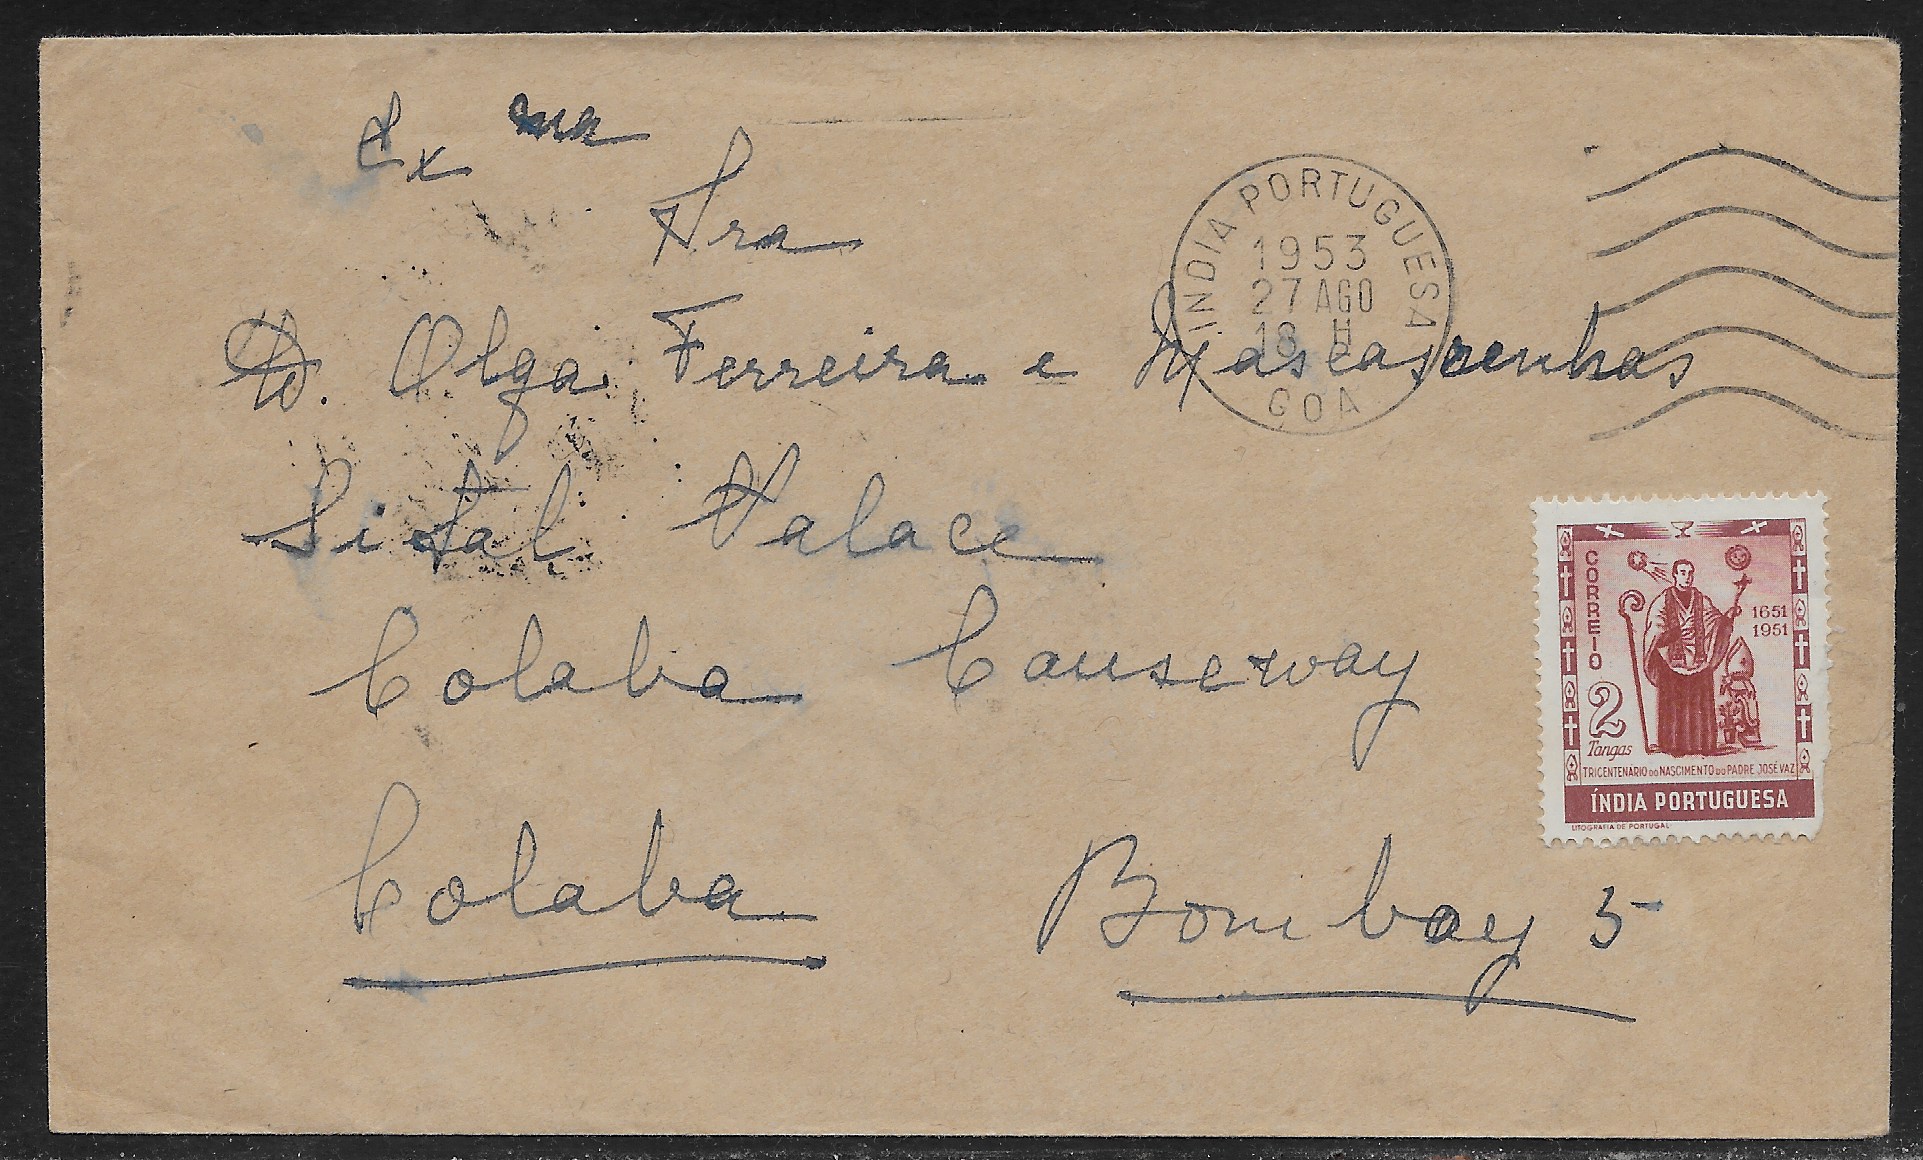 Ex ma
Sra
D. Olga Ferreira e Mascarenhas
Sital Palace
Colaba Causeway
Colaba Bombay 5
INDIA PORTUGUESA
1953
27 AGO
18 H
GOA
CORREIO
1651
1951
2
Tangas
TRICENTENÁRIO DO NASCIMENTO DO PADRE JOSÉ VAZ
ÍNDIA PORTUGUESA
LITOGRAFIA DE PORTUGAL